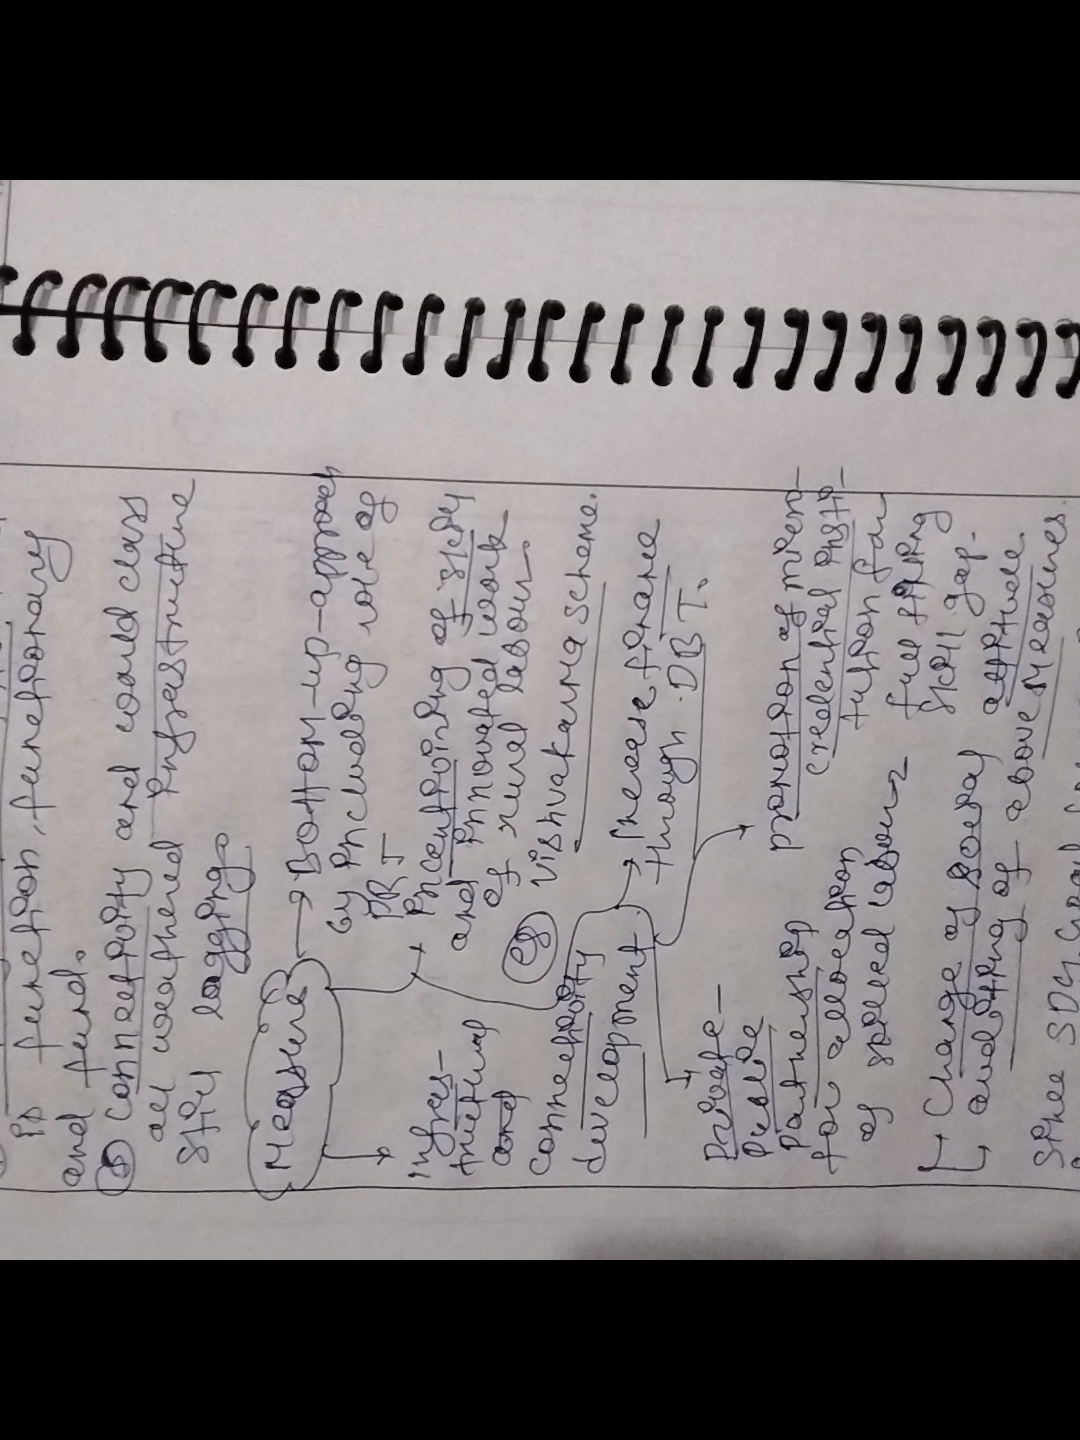 is function, functionary
and fund.
⑧ Connectivity and world class
all weathered Infrastructure
still lagging.
Measures
→ Bottom-up-approach
by including role of
PRI
Infras-
tructural
and
connectivity
development.
→ Incentivizing of skilly
and innovated work
of rural labour.
eg Vishvakarma scheme.
→ Increase finance
through DBT.
Private-
Public
Partnership
for allocation
of skilled labour
promotion of micro-
credential insti-
tution for
full filling
skill gap.
→ Change of social attitude
→ auditing of above Measures.
Since SDG Goal